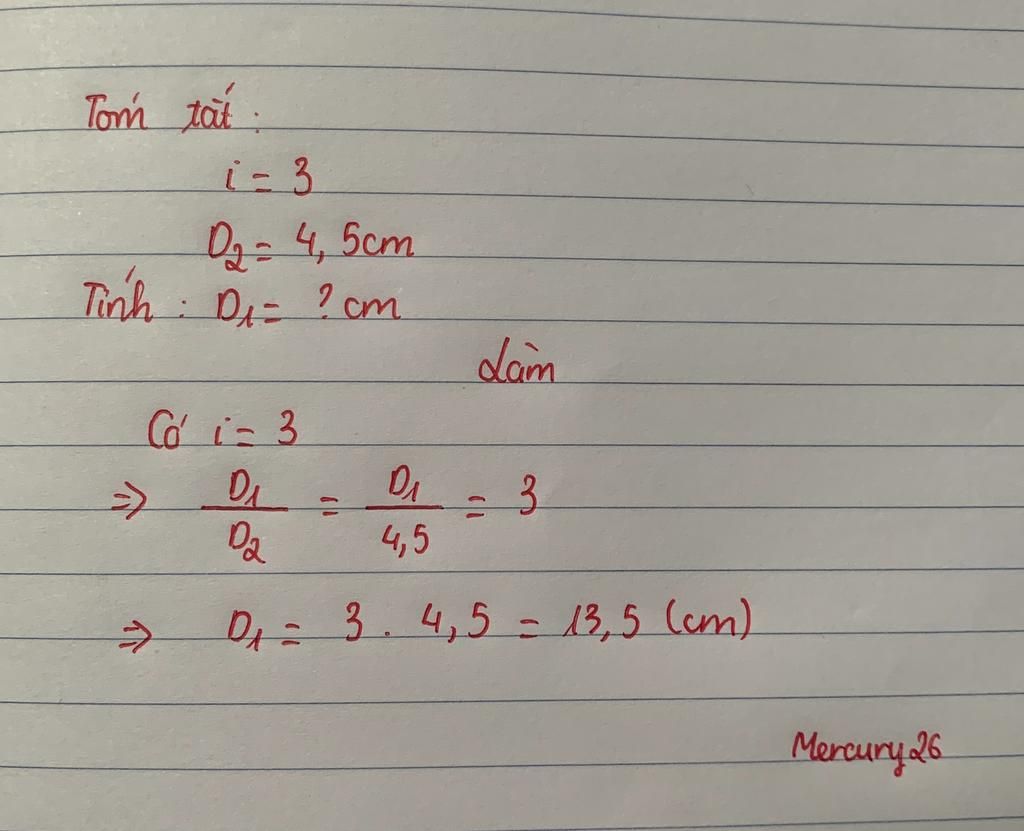 Tóm tắt :
i = 3
D₂ = 4,5cm
Tính : D₁ = ? cm
Làm
Có i = 3
⇒ D₁/D₂ = D₁/4,5 = 3
⇒ D₁ = 3 . 4,5 = 13,5 (cm)
Mercury26